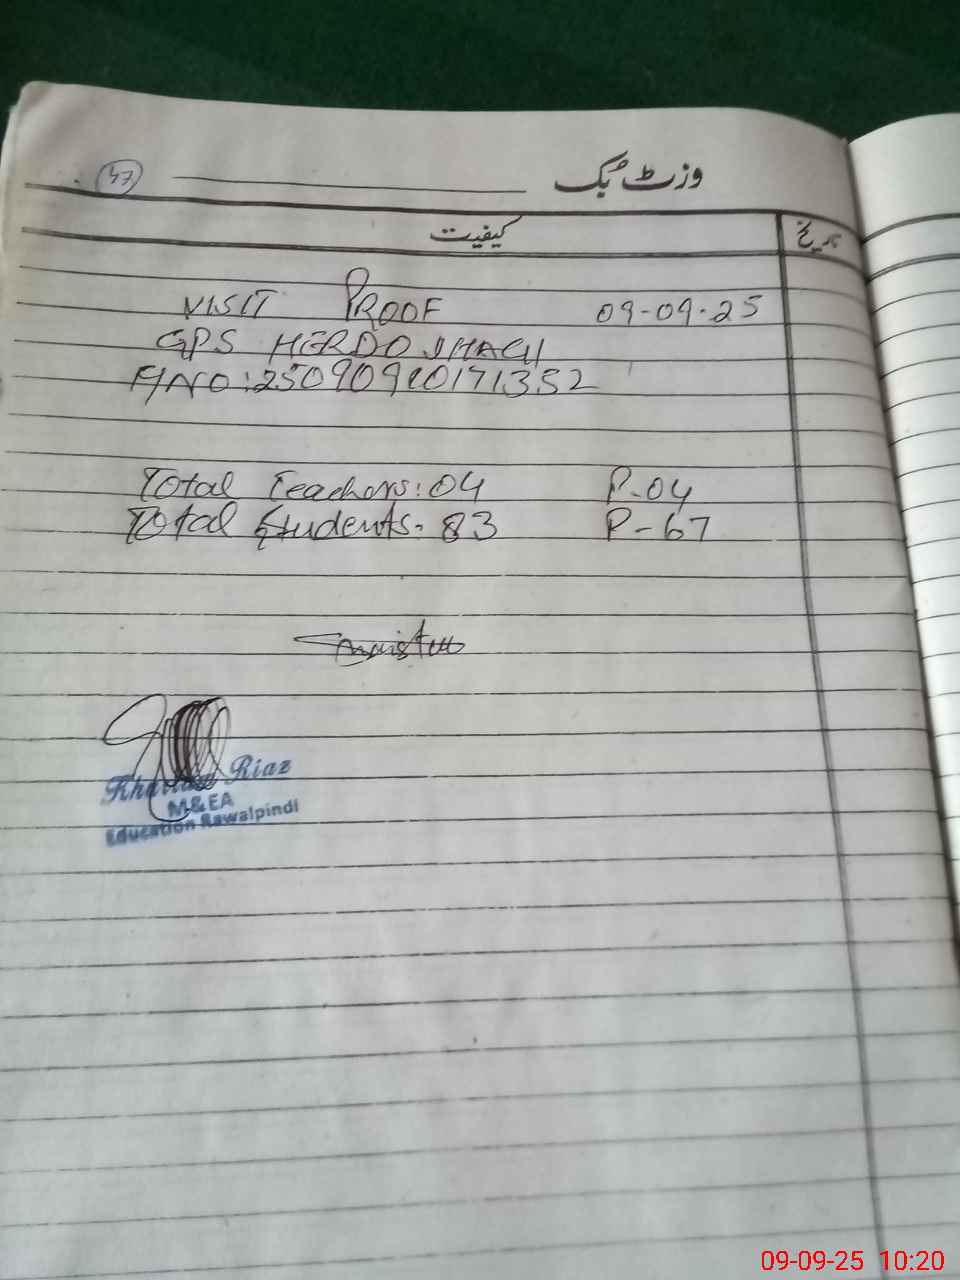 وزٹ بک
47
کیفیت
تاریخ
VISIT PROOF 09-09-25
GPS HERDO
A/NO:25090910171352
Total Teachers:04 P-04
Total Students-83 P-67
Riaz
M&EA
Education Rawalpindi
09-09-25 10:20